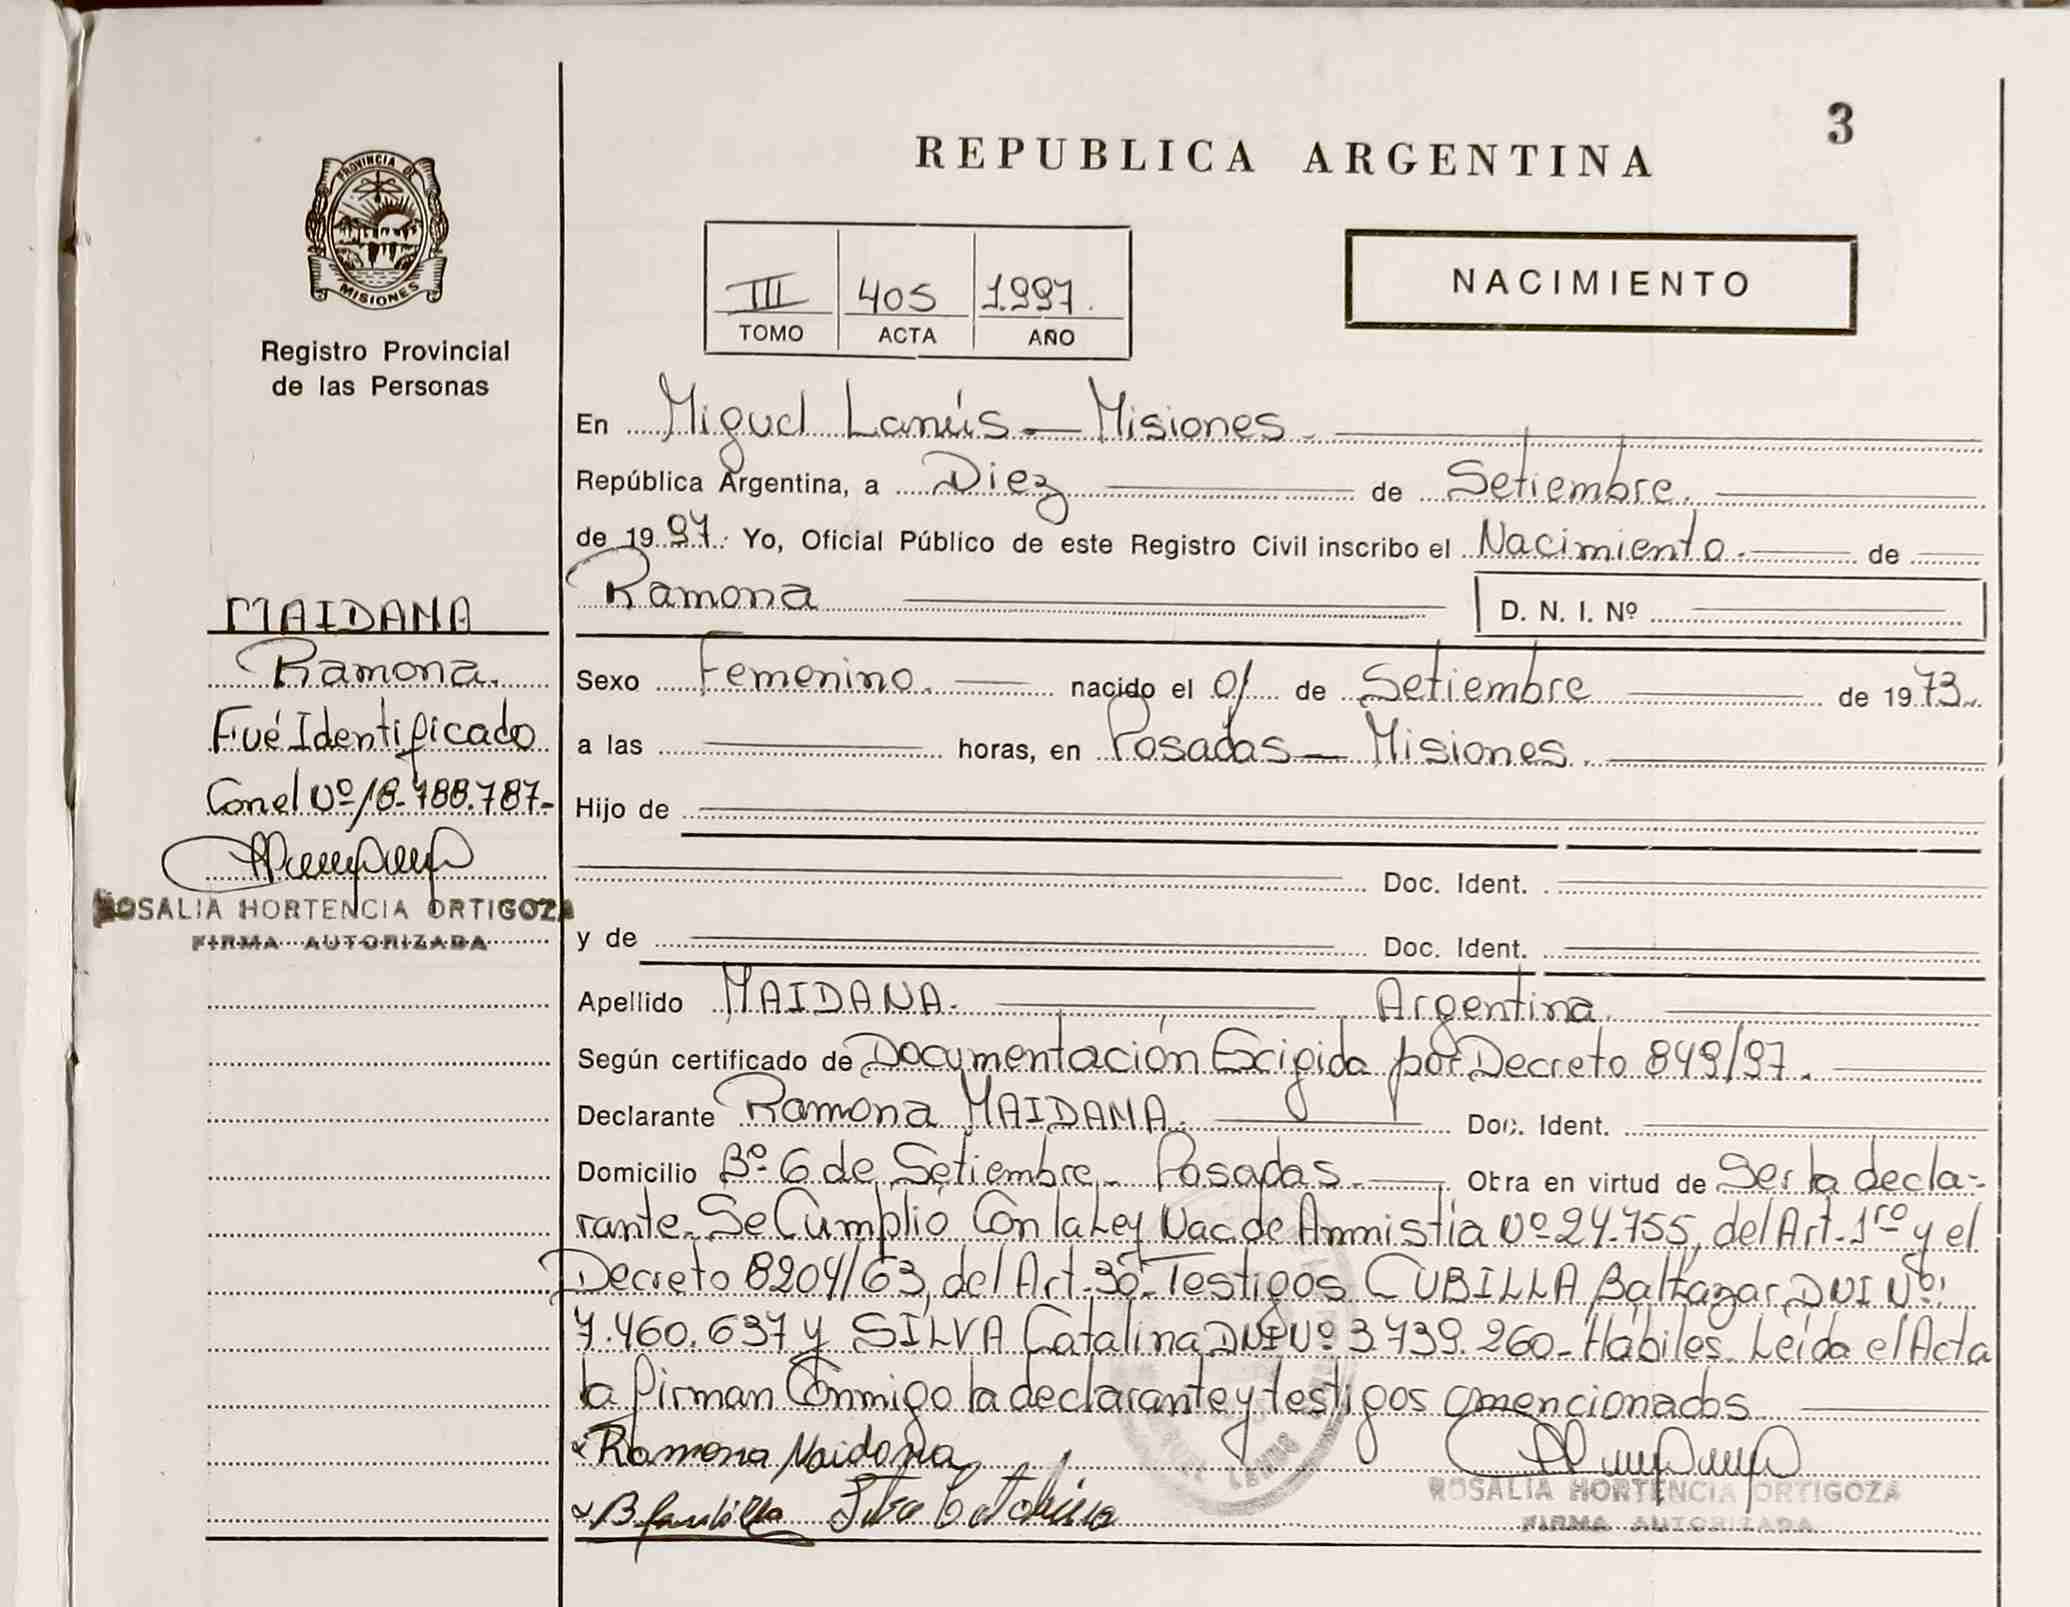 3
REPUBLICA ARGENTINA
PROVINCIA DE
MISIONES
Registro Provincial
de las Personas
III 405 1.997.
TOMO ACTA AÑO
NACIMIENTO
En Miguel Lanús - Misiones.
República Argentina, a Diez de Setiembre.
de 19 97. Yo, Oficial Público de este Registro Civil inscribo el Nacimiento. de
Ramona D. N. I. Nº
Sexo Femenino. nacido el 01 de Setiembre de 19 73.
a las horas, en Posadas - Misiones.
Hijo de
Doc. Ident.
y de Doc. Ident.
Apellido MAIDANA. Argentina.
Según certificado de Documentación Exigida por Decreto 849/97.
Declarante Ramona MAIDANA. Doc. Ident.
Domicilio Bº 6 de Setiembre - Posadas. Obra en virtud de Ser la decla-
rante. Se Cumplió Con la Ley Nac de Amnistia Nº 24.755, del Art. 1ro y el
Decreto 8204/63, del Art. 30. Testigos CUBILLA Baltazar DNI Nº:
7.460.637 y SILVA Catalina DNI Nº 3.739.260 - Hábiles. Leída el Acta
la firman Conmigo la declarante y testigos mencionados
Ramona Maidana
B. Cubilla Silva Catalina
ROSALIA HORTENCIA ORTIGOZA
FIRMA AUTORIZADA
MAIDANA
Ramona.
Fué Identificado
Con el Nº 18.788.787-
ROSALIA HORTENCIA ORTIGOZA
FIRMA AUTORIZADA